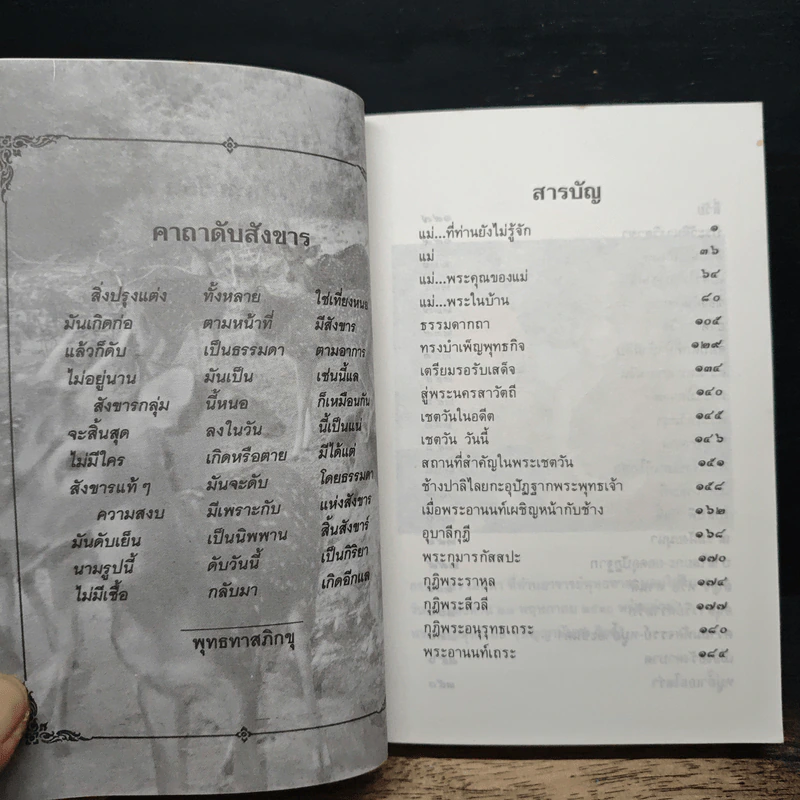 คาถาดับสังขาร
สิ่งปรุงแต่ง ทั้งหลาย ใช่เที่ยงหนอ
มันเกิดก่อ ตามหน้าที่ มีสังขาร
แล้วก็ดับ เป็นธรรมดา ตามอาการ
ไม่อยู่นาน มันเป็น เช่นนี้แล
สังขารกลุ่ม นี้หนอ ก็เหมือนกัน
จะสิ้นสุด ลงในวัน นี้เป็นแน่
ไม่มีใคร เกิดหรือตาย มีได้แต่
สังขารแท้ ๆ มันจะดับ โดยธรรมดา
ความสงบ มีเพราะกับ แห่งสังขาร
มันดับเย็น เป็นนิพพาน สิ้นสังขาร์
นามรูปนี้ ดับวันนี้ เป็นกิริยา
ไม่มีเชื้อ กลับมา เกิดอีกแล
พุทธทาสภิกขุ
สารบัญ
แม่...ที่ท่านยังไม่รู้จัก ๑
แม่ ๓๖
แม่...พระคุณของแม่ ๖๔
แม่...พระในบ้าน ๘๐
ธรรมดากถา ๑๐๕
ทรงบำเพ็ญพุทธกิจ ๑๒๙
เตรียมรอรับเสด็จ ๑๓๔
สู่พระนครสาวัตถี ๑๔๐
เชตวันในอดีต ๑๔๕
เชตวัน วันนี้ ๑๔๖
สถานที่สำคัญในพระเชตวัน ๑๕๑
ช้างปาลิไลยกะอุปัฏฐากพระพุทธเจ้า ๑๕๘
เมื่อพระอานนท์เผชิญหน้ากับช้าง ๑๖๒
อุบาลีกุฎี ๑๖๘
พระกุมารกัสสปะ ๑๗๐
กุฎิพระราหุล ๑๗๔
กุฎิพระสีวลี ๑๗๗
กุฎิพระอนุรุทธเถระ ๑๘๐
พระอานนท์เถระ ๑๘๔